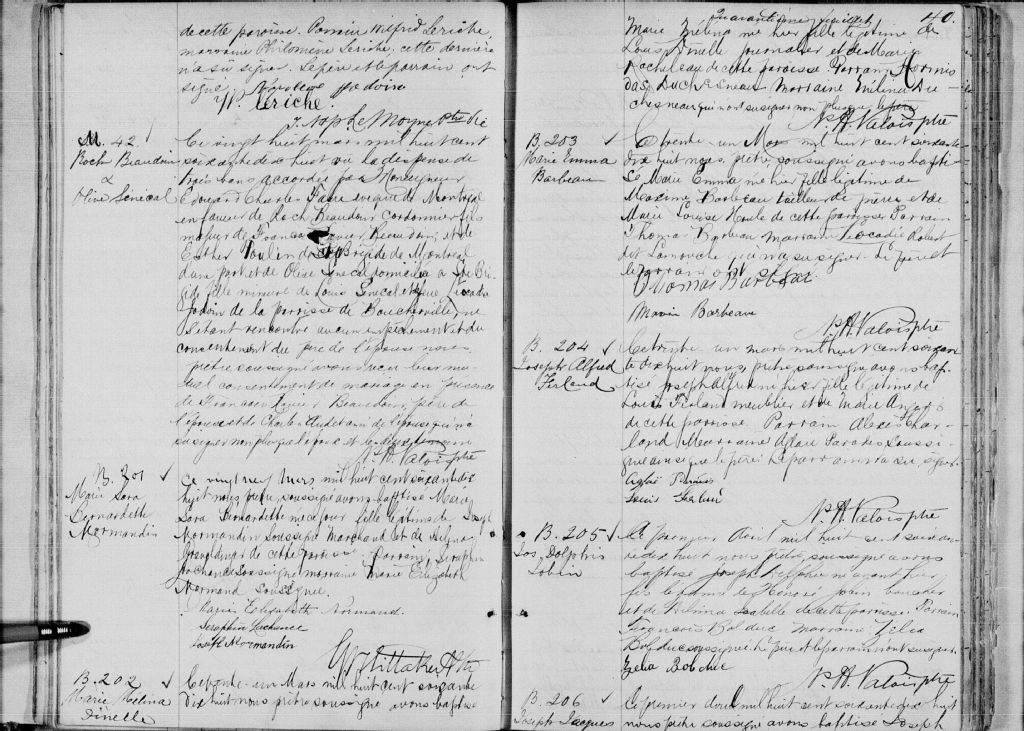 de cette paroisse. Parrain Wilfrid Leriche,
marraine Philomène Leriche, cette dernière
n'a su signer. Le père et le parrain ont
signé. Napoléon Jodoin
W. Leriche.
J. Nap. Le Moyne Ptre
M. 42
Roch Beaudoin
&
Olive Sénécal
Ce vingt huit mars mil huit cent
soixante dix huit vu la dispense de
trois bans accordée par Monseigneur
Edouard Charles Fabre évêque de Montréal
en faveur de Roch Beaudoin Cordonnier fils
majeur de François Xavier Beaudoin et de
Esther de Ste Brigide de Montréal
d'une part et de Olive Sénécal domiciliée à Ste Bri
gide fille mineure de Louis Sénécal et de Léocadie
Jodoin de la paroisse de Boucherville, ne
s'étant rencontré aucun empêchement et du
consentement du père de l'épouse nous
prêtre soussigné avons reçu leur mu
tuel consentement de mariage en présence
de François Xavier Beaudoin, père de
l'époux et de Charles de l'épouse qui n'a
su signer non plus que l'époux et le
N. H. Valois ptre
B. 201
Marie Sara
Bernadette
Normandin
Ce vingt neuf Mars mil huit cent soixante dix
huit nous prêtre soussigné avons baptisé Marie
Sara Bernardette née ce jour fille légitime de Joseph
Normandin soussigné Marchand et de
de cette paroisse. Parrain, Séraphin
Lachance soussigné marraine Marie Elizabeth
Normand soussignée.
Marie Elizabeth Normand.
Séraphin Lachance
Joseph Normandin
G. Whittaker Ptre
B. 202
Marie Mélina
Pinelle
Ce trente-un Mars mil huit cent soixante
dix huit nous prêtre soussigné avons baptisé
Quarantième feuillet 40.
Marie Mélina née hier fille légitime de
Louis Pinelle journalier et de Marie
Rocheleau de cette paroisse. Parrain Hormis
das Duchesneau Marraine Emélina Du
chesneau qui n'ont su signer non plus que le père
N. H. Valois ptre
B. 203
Marie Emma
Barbeau
Ce trente-un Mars mil huit cent soixante
dix huit nous, prêtre, soussigné avons bapti
sé Marie Emma née hier fille légitime de
Maxime Barbeau tailleur de pierre et de
Marie Louise Houle de cette paroisse Parrain
Thomas Barbeau marraine Léocadie Robert
dit Lanouche qui n'a su signer. Le père et
le parrain ont signé
Thomas Barbeau
Maxim Barbeau
N. H. Valois ptre
B. 204
Joseph Alfred
Ferland
Ce trente-un mars mil huit cent soixan
te dix huit nous, prêtre soussigné avons bap
tisé Joseph Alfred né hier fils légitime de
Louis Ferland meublier et de Marie
de cette paroisse. Parrain Alexis Char
land Marraine Aglaé Paradis soussi
gnée ainsi que le père. Le parrain n'a su signer.
Aglaé Paradis
Louis Ferland
N. H. Valois ptre
B. 205
Jos. Dolphis
Lobin
Ce premier Avril mil huit cent soixan
te dix huit nous prêtre, soussigné avons
baptisé Joseph Dolphis né avant hier
fils légitime de Honoré boucher
et de Zélima Labelle de cette paroisse. Parrain
François Bolduc Marraine Zélia
Bolduc soussignée. Le père et le parrain n'ont su signer.
Zelia Bolduc
N. H. Valois ptre
B. 206
Joseph Jacques
Ce premier Avril mil huit cent soixante dix huit
nous prêtre soussigné avons baptisé Joseph